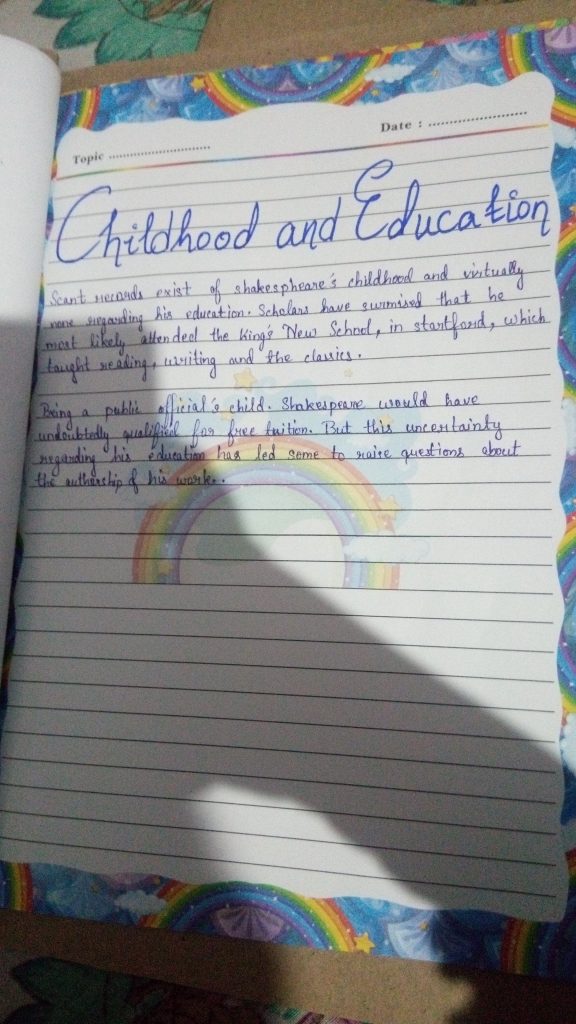 Topic ............................
Date : ..........................
Childhood and Education
Scant records exist of shakespheare's childhood and virtually
none regarding his education. Scholars have surmised that he
most likely attended the King's New School, in startford, which
taught reading, writing and the classics.
Being a public official's child. Shakespeare would have
undoubtedly qualified for free tuition. But this uncertainty
regarding his education has led some to raise questions about
the authorship of his work.